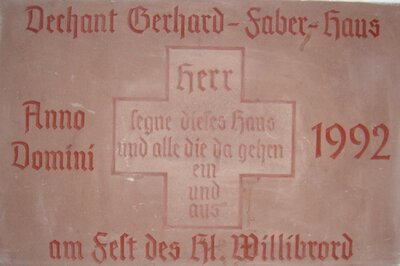 Dechant Gerhard-Faber-Haus
Herr
Anno
Domini
segne dieses Haus
und alle die da gehen
ein
und
aus
1992
am Fest des Hl. Willibrord